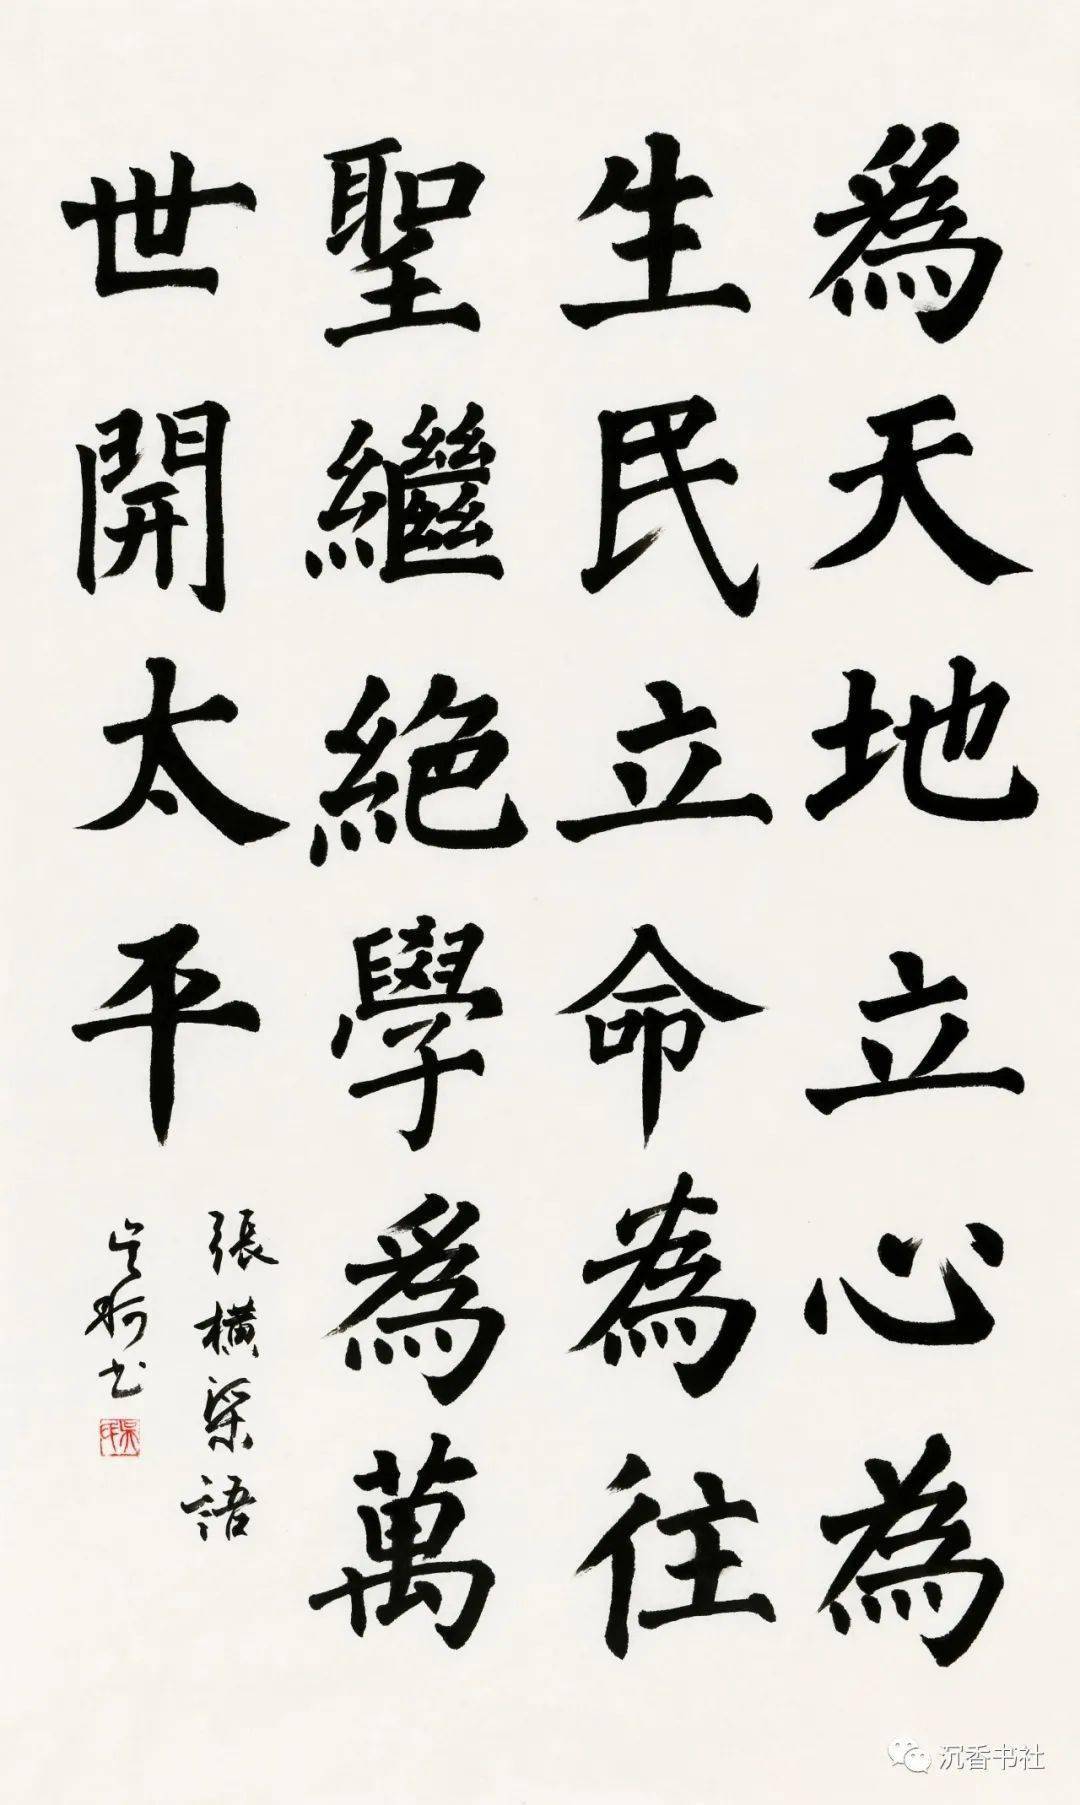 爲天地立心為
生民立命為往
聖繼絶學爲萬
世開太平
張橫渠語
沉香书社